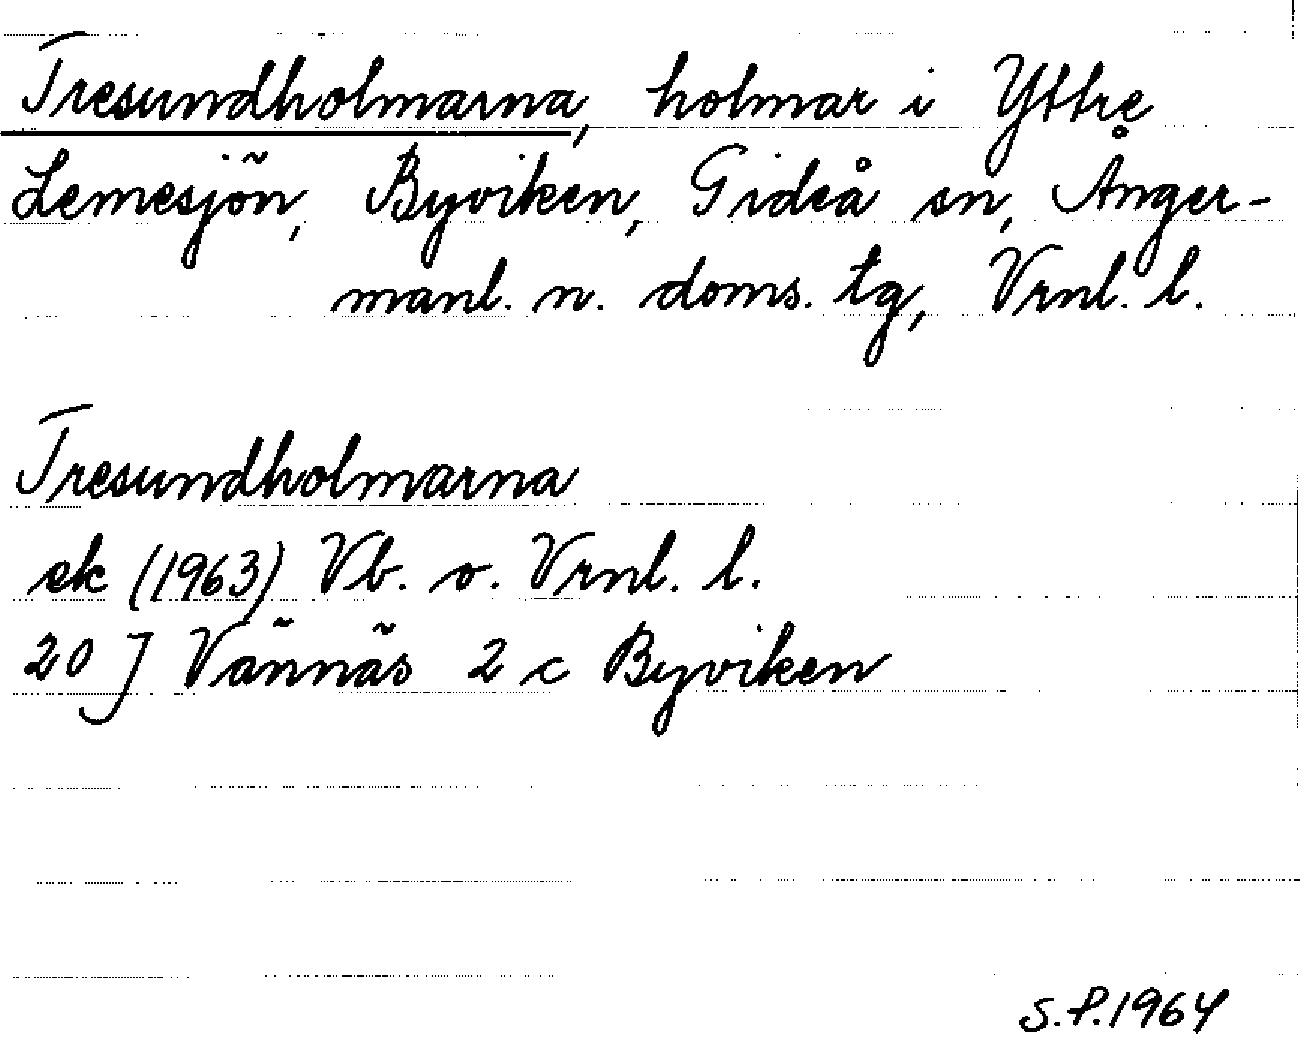 Tresundholmarna, holmar i Yttre
Lemesjön, Byviken, Gideå sn, Ånger-
manl. n. doms. tg, Vrnl. l.
Tresundholmarna
ek (1963) Vb. o. Vrnl. l.
20 J Vännäs 2 c Byviken
S.P.1964